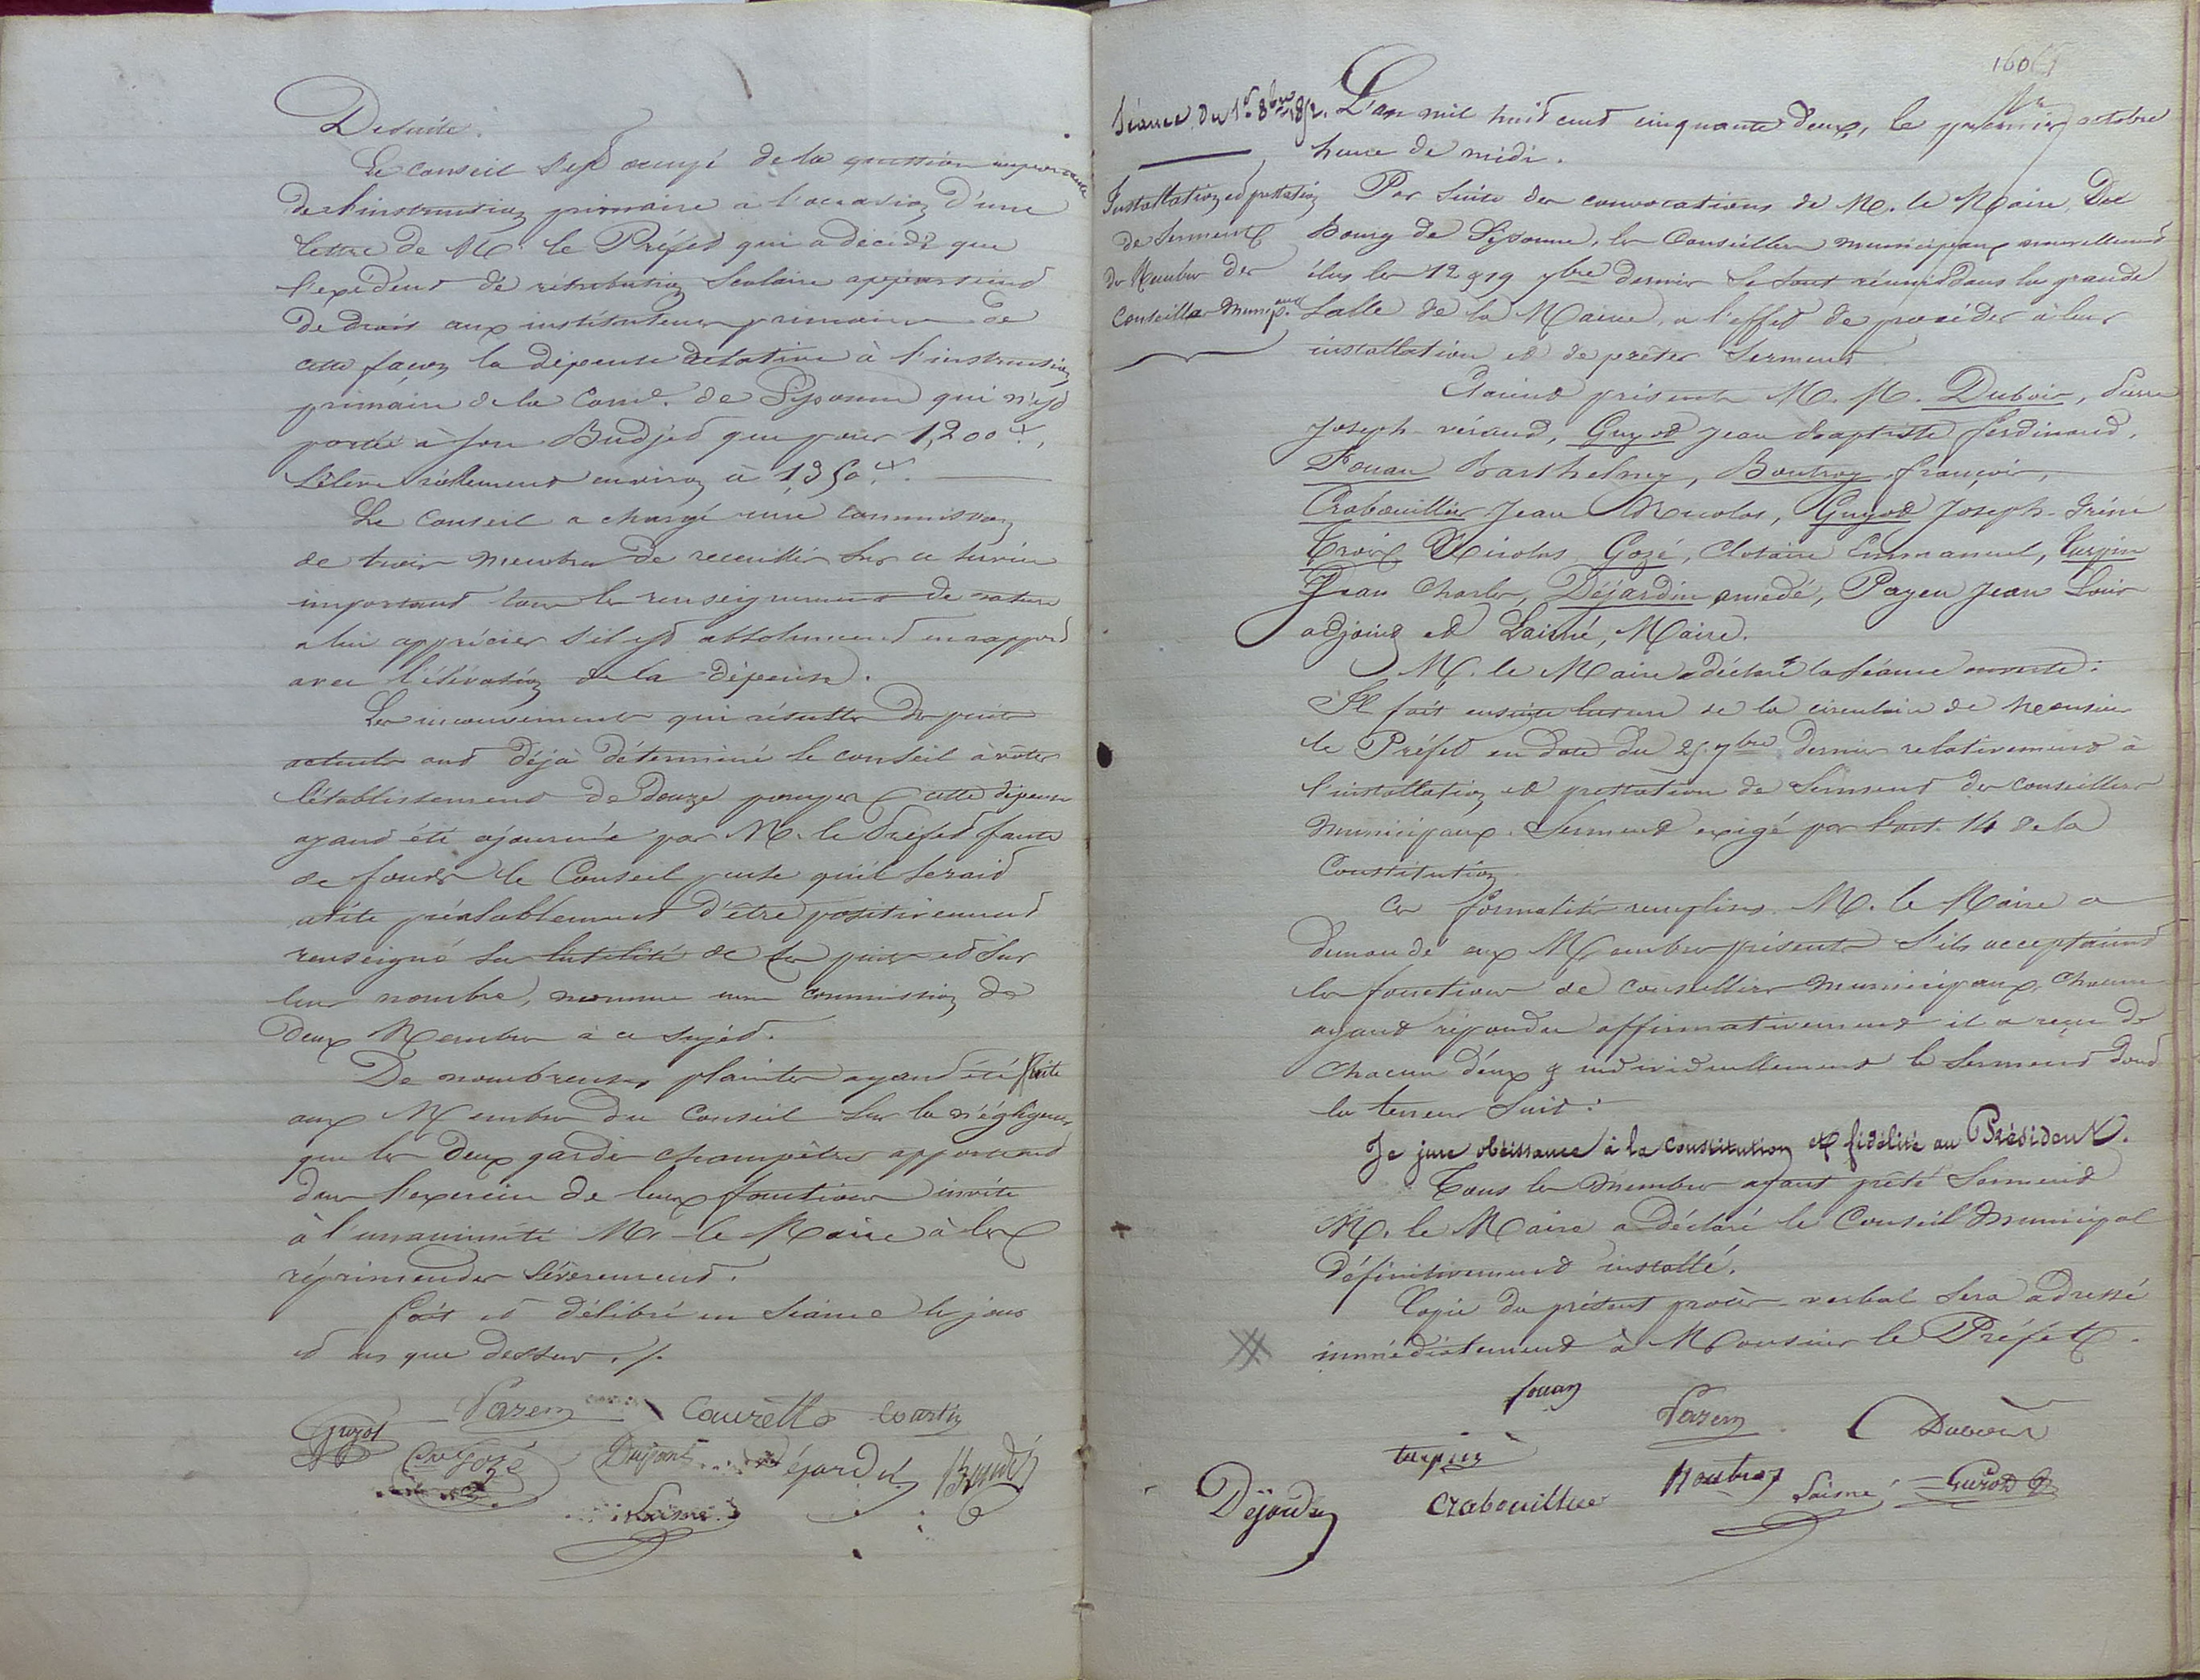 De suite.
Le conseil s'est occupé de la question importante
de l'instruction primaire à l'occasion d'une
lettre de M. le Préfet qui a décidé que
l'excédent de rétribution scolaire appartient
de droit aux instituteurs primaires de
cette façon la dépense relative à l'instruction
primaire de la Come. de Sissonne qui n'est
portée à son Budjet que pour 1,200 f.,
s'élève réellement environ à 1,350 f.
Le Conseil a chargé une commission
de trois membres de recueillir sur ce service
important tous les renseignements de nature
a lui apprécier s'il est absolument en rapport
avec l'élévation de la dépense.
Les inconvénients qui résulte des puits
actuels ont déjà déterminé le conseil à voter
l'établissement de douze pompes cette dépense
ayant été ajournée par M. le Préfet faute
de fonds le Conseil pense qu'il serait
utile préalablement d'être positivement
renseigné sur l'utilité de ces puits et sur
leur nombre, nomme une commission de
deux Membres à ce sujet.
De nombreuses plaintes ayant été faite
aux Membres du Conseil sur la négligence
que les deux gardes champêtres apportent
dans l'exercice de leurs fonctions invite
à l'unanimité M. le Maire à les
réprimender sévèrement.
Fait et délibéré en séance les jour
et an que dessus ./.
Payen Courette Courtin
Guyot Gozé Dupont Déjardin
Lainné
160
Séance du 1er 8bre 1852. L'an mil huit cent cinquante deux, le premier octobre
heure de midi.
Installation et prestation Par suite des convocations de M. le Maire Du
de Serment Bourg de Sissonne, les Conseillers municipaux nouvellement
de Membres des élus les 12 & 19 7bre dernier se sont réunis dans la grande
Conseillers Municipaux Salle de la Mairie, a l'effet de procéder à leur
installation et de prêter Serment.
Etaient présents M. M. Dubois, Pierre
Joseph vérand, Guyot Jean Baptiste ferdinand,
Fouan Barthelmy, Boutroy françois,
Crabouillier Jean Nicolas, Guyot Joseph Iréné
Croix Nicolas Gozé, Clotaire Emmanuel, Turpin
Jean Charles, Déjardin amédé, Payen Jean Louis
adjoint et Lainné, Maire.
M. le Maire a déclaré la séance ouverte.
Il fait ensuite lecture de la circulaire de Monsieur
le Préfet en date du 25 7bre dernier relativement à
l'installation et prestation de Serment des Conseillers
Municipaux. Serment exigé par l'art. 14 de la
Constitution
Ces formalités remplies M. le Maire a
demandé aux Membres présents s'ils acceptaient
les fonctions de Conseillers Municipaux, Chacun
ayant répondu affirmativement il a reçu de
Chacun d'eux & individuellement le Serment dont
la teneur suit :
Je jure obéissance à la constitution et fidélité au Président.
Tous les membres ayant prêté Serment
M. le Maire a déclaré le Conseil Municipal
définitivement installé.
Copie du présent procès-verbal sera adressé
immédiatement à Monsieur le Préfet.
fouan
Payen Dubois
turpin
Boutroy Lainné Guyot
Déjardin Crabouillier